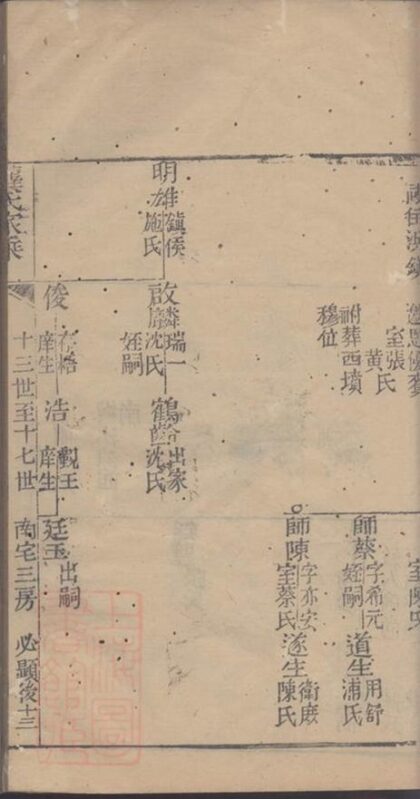 室張氏
黃氏
祔葬西墳
穆位
師蔡
字希元
姪嗣
道生
用舒
浦氏
師陳
字亦安
室蔡氏
遂生
陳氏
明
鎮侯
施氏
啟
麟瑞一
沈氏
姪嗣
鶴
出家
沈氏
俊
庠生
浩
觀王
庠生
廷玉
出嗣
氏家乘
十三世至十七世
南宅三房
必顯後十三